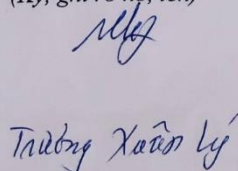 (Ký, ghi rõ họ, tên)
Trương Xuân Lý